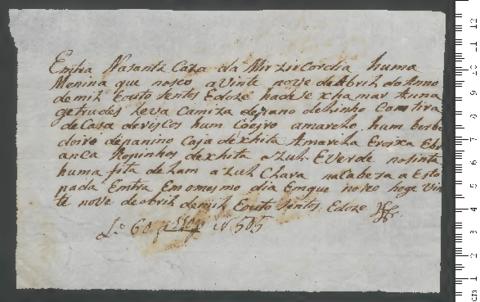 Emtra Nasanta Caza da Mizericordia huma
Menina que nasceo a vinte nove de Abril do Anno
de mil Eouto sentos Edoze hade se xhamar Anna
getrudes leva Camiza de pano de linho Com tira
de Casa de riscos hum Coeiro amarelo, hum
de panino Caza de xhita Amarela Eroixa Ebr
anca Roupinhos de xhita a Zul Everde na sinta
huma fita de Lam a Zul Clara na Cabesa a Esto
pada Emtra Em omesmo dia Em que naseo hoge Vin
te nove de abril de mil Eouto sentos Edoze
L.º 60 N. 505